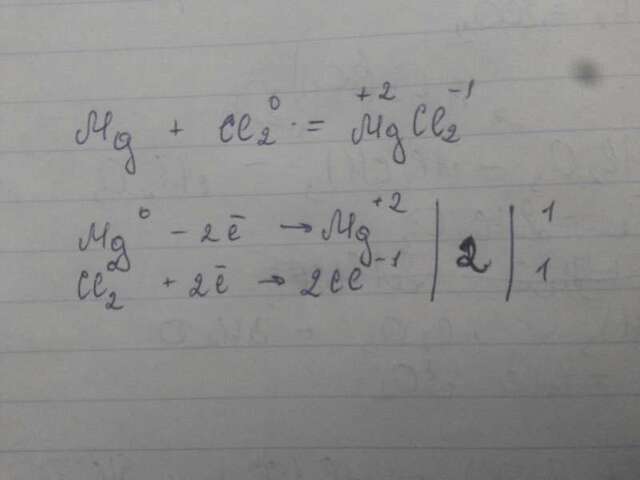 Mg + Cl₂⁰ = Mg⁺²Cl₂⁻¹
Mg⁰ - 2ē → Mg⁺² | 2 | 1
Cl₂⁰ + 2ē → 2Cl⁻¹ | | 1